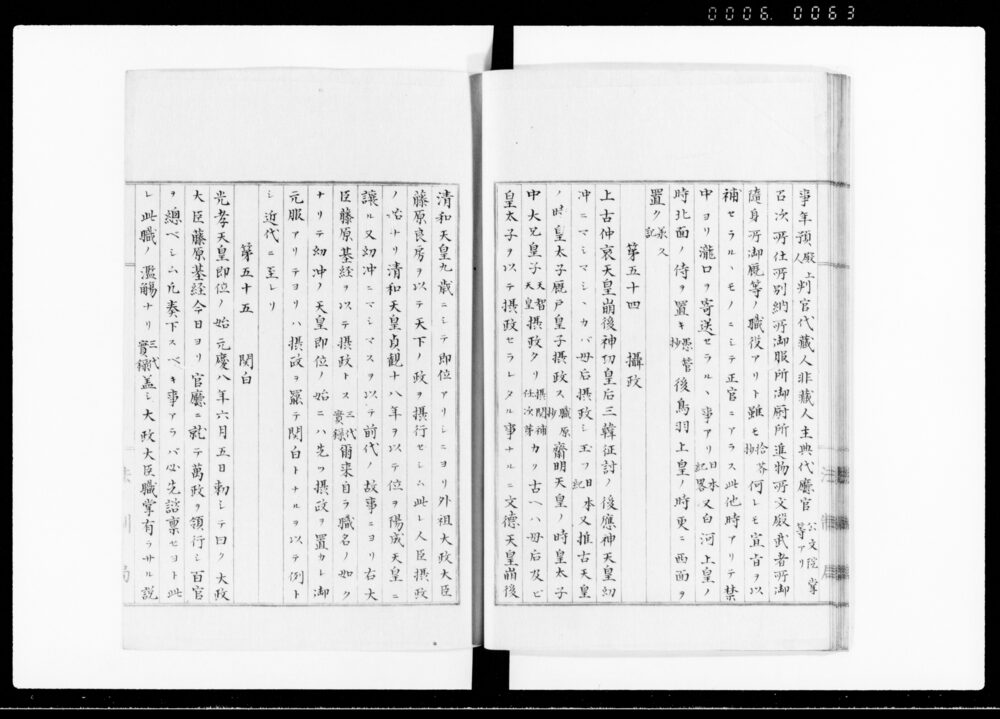 0006. 0063
事年預殿上人判官代藏人非藏人主典代廳官公文院掌等アリ
召次所仕所別納所御服所御厨所進物所文殿武者所御
隨身所御厩等ノ職役アリト雖モ拾芥抄何レモ宣旨ヲ以
補セラルヽモノニシテ正官ニアラス此他時アリテ禁
中ヨリ瀧口ヲ寄送セラルヽ事アリ日本紀畧又白河上皇ノ
時北面ノ侍ヲ置キ愚管抄後鳥羽上皇ノ時更ニ西面ヲ
置ク承久記
第五十四 攝政
上古仲哀天皇崩後神功皇后三韓征討ノ後應神天皇幼
冲ニマシマシヽカバ母后摂政シ玉フ日本紀又推古天皇
ノ時皇太子厩戸皇子摂政ス職原抄齋明天皇ノ時皇太子
中大兄皇子天智天皇摂政タリ摂関補任次第カク古ヘハ母后及ビ
皇太子ヲ以テ摂政セラレタル事ナルニ文德天皇崩後
清和天皇九歳ニシテ即位アリシニヨリ外祖大政大臣
藤原良房ヲ以テ天下ノ政ヲ摂行セシム此レ人臣摂政
ノ始ナリ清和天皇貞観十八年ヲ以テ位ヲ陽成天皇ニ
讓ル又幼冲ニマシマスヲ以テ前代ノ故事ニヨリ右大
臣藤原基経ヲ以テ摂政トス三代實録爾来自ラ職名ノ如ク
ナリテ幼冲ノ天皇即位ノ始ニハ先ツ摂政ヲ置カレ御
元服アリテヨリハ摂政ヲ罷テ関白トナルヲ以テ例ト
シ近代ニ至レリ
第五十五 関白
光孝天皇即位ノ始元慶八年六月五日勅シテ曰ク大政
大臣藤原基経今日ヨリ官廳ニ就テ萬政ヲ領行シ百官
ヲ總ベシム凡奏下スベキ事アラバ必先諮稟セヨト此
レ此職ノ濫觴ナリ三代實録盖シ大政大臣職掌有ラサル説